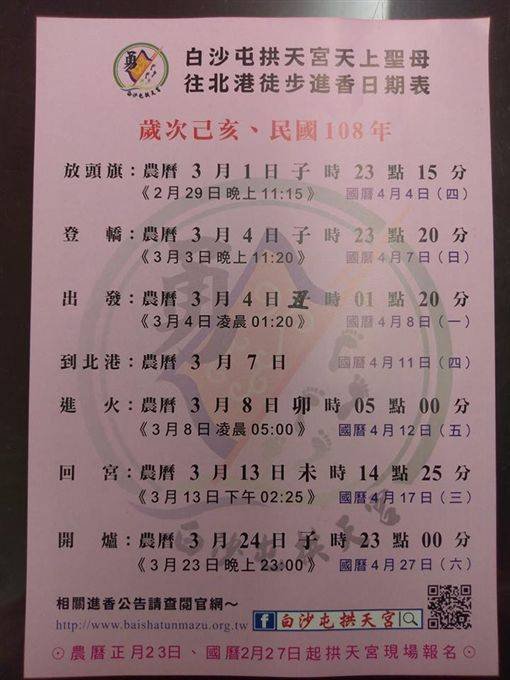 勇
白沙屯拱天宮
白沙屯拱天宮天上聖母
往北港徒步進香日期表
歲次己亥、民國108年
放頭旗：農曆 3 月 1 日 子 時 23 點 15 分
《2月29日晚上11:15》 國曆4月4日（四）
登轎：農曆 3 月 4 日 子 時 23 點 20 分
《3月3日晚上11:20》 國曆4月7日（日）
出發：農曆 3 月 4 日 丑 時 01 點 20 分
《3月4日凌晨01:20》 國曆4月8日（一）
到北港：農曆 3 月 7 日 國曆4月11日（四）
進火：農曆 3 月 8 日 卯 時 05 點 00 分
《3月8日凌晨05:00》 國曆4月12日（五）
回宮：農曆 3 月 13 日 未 時 14 點 25 分
《3月13日下午02:25》 國曆4月17日（三）
開爐：農曆 3 月 24 日 子 時 23 點 00 分
《3月23日晚上23:00》 國曆4月27日（六）
白沙屯拱天宮
相關進香公告請查閱官網～
http://www.baishatunmazu.org.tw f 白沙屯拱天宮
⊙農曆正月23日、國曆2月27日起拱天宮現場報名⊙